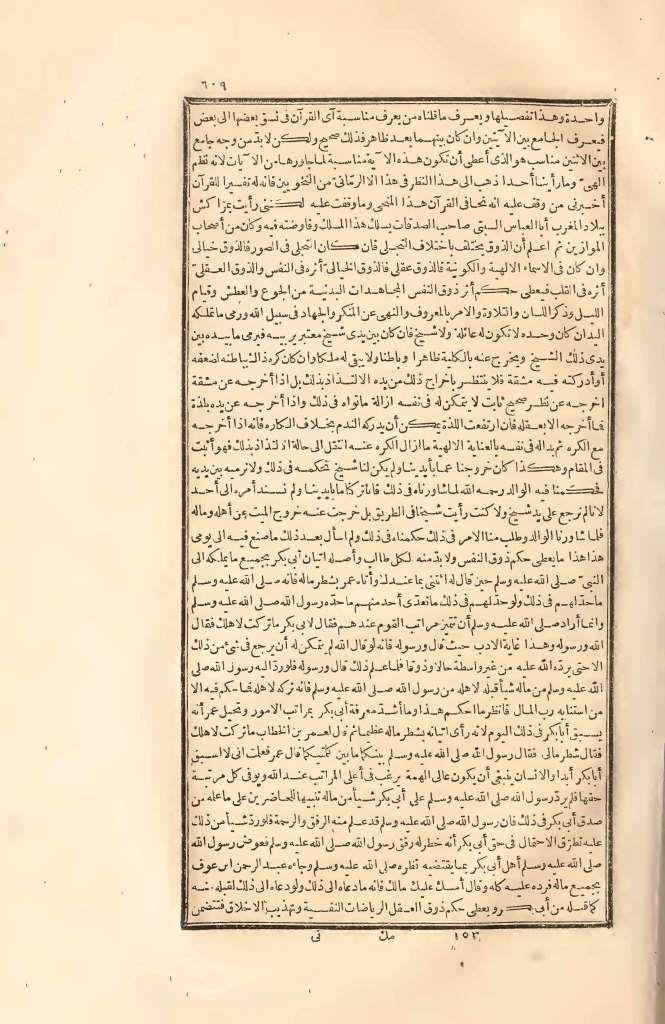 ٦٠٩
واحدة وهذا تفصيلها ويعرف ما قلناه من يعرف مناسبة آى القرآن فى نسق بعضها الى بعض
فيعرف الجامع بين الآيتين وان كان بينهما بعد ظاهر فذلك صحيح ولكن لابد من وجه جامع
بين الاثنين مناسب هو الذى أعطى أن تكون هذه الآية مناسبة لما جاورها من الآيات لانه نظم
الهىّ وما رأينا أحدا ذهب الى هذا النظر فى هذا الا الرمّانىّ من النحويين فان له تفسيرا للقرآن
أخبرنى من وقف عليه انه نحا فى القرآن هذا المنحى وما وقفت عليه لكننى رأيت بمرّاكش
ببلاد المغرب أبا العباس السبتى صاحب الصدقات يسلك هذا المسلك وفاوضته فيه وكان من أصحاب
الموازين ثم اعلم أن الذوق يختلف باختلاف التجلى فان كان التجلى فى الصور فالذوق خيالى
وان كان فى الاسماء الالهية والكونية فالذوق عقلى فالذوق الخيالىّ أثره فى النفس والذوق العقلىّ
أثره فى القلب فيعطى حكم أثر ذوق النفس المجاهدات البدنية من الجوع والعطش وقيام
الليل وذكر اللسان والتلاوة والامر بالمعروف والنهى عن المنكر والجهاد فى سبيل الله ورمى ما تملكه
اليدان كان وحده لا تكون له عائلة ولا شيخ فان كان بين يدى شيخ معتبر يربيه فيرمى ما بيده بين
يدى ذلك الشيخ ويخرج عنه بالكلية ظاهرا وباطنا ولا يبقى له ملكا وان كان كره ذلك بباطنه لضعفه
أو أدركته فيه مشقة فلا ينتظر باخراج ذلك من يده الالتذاذ بذلك بل اذا أخرجه عن مشقة
اخرجه عن نظر صحيح ثابت لا يتمكن له فى نفسه ازالة ما نواه فى ذلك واذا أخرجه عن يده بلذة
فما أخرجه الا بعقله فان ارتفعت اللذة يمكن أن يدركه الندم بخلاف الكاره فانه اذا أخرجه
مع الكره ثم بدا له فى نفسه بالعناية الالهية ما ازال الكره عنه انتقل الى حالة الالتذاذ بذلك فهو أثبت
فى المقام وهكذا كان خروجنا عما بأيدينا ولم يكن لنا شيخ نحكمه فى ذلك ولا نرميه بين يديه
فحكمنا فيه الوالد رحمه الله لما شاورناه فى ذلك فانا تركنا ما بأيدينا ولم نسند أمره الى أحد
لانا لم نرجع على يد شيخ ولا كنت رأيت شيخا فى الطريق بل خرجت عنه خروج الميت عن أهله وماله
فلما شاورنا الوالد وطلب منا الامر فى ذلك حكمناه فى ذلك ولم اسأل بعد ذلك ما صنع فيه الى يومى
هذا هذا ما يعطى حكم ذوق النفس ولابد منه لكل طالب وأصله اتيان أبى بكر بجميع ما يملكه الى
النبىّ صلى الله عليه وسلم حين قال له ائتنى بما عندك وأتاه عمر بشطر ماله فانه صلى الله عليه وسلم
ما حدّ لهم فى ذلك ولو حدّ لهم فى ذلك ما تعدّى أحد منهم ما حدّه رسول الله صلى الله عليه وسلم
وانما أراد صلى الله عليه وسلم أن تتميز مراتب القوم عندهم فقال لابى بكر ما تركت لاهلك فقال
الله ورسوله وهذا غاية الادب حيث قال ورسوله فانه لو قال الله لم يتمكن له أن يرجع فى شئ من ذلك
الا حتى يردّه الله عليه من غير واسطة حالا وذوقا فلما علم ذلك قال ورسوله فلو ردّ اليه رسول الله صلى
الله عليه وسلم من ماله شيأ قبله لاهله من رسول الله صلى الله عليه وسلم فانه تركه لاهله فما حكم فيه الا
من استنابه رب المال فانظر ما احكم هذا وما أشدّ معرفة أبى بكر بمراتب الامور وتخيل عمر أنه
يسبق أبا بكر فى ذلك اليوم لانه رأى اتيانه بشطر ماله عظيما ثم قال لعمر بن الخطاب ما تركت لاهلك
فقال شطر مالى فقال رسول الله صلى الله عليه وسلم بينكما ما بين كلمتيكما قال عمر فعلمت انى لا اسبق
أبا بكر أبدا والانسان ينبغى أن يكون عالى الهمة يرغب فى أعلى المراتب عند الله ويوفى كل مرتبة
حقها فلم يردّ رسول الله صلى الله عليه وسلم على أبى بكر شيأ من ماله تنبيها للحاضرين على ما علمه من
صدق أبى بكر فى ذلك فان رسول الله صلى الله عليه وسلم قد علم منه الرفق والرحمة فلو ردّ شيأ من ذلك
عليه تطرّق الاحتمال فى حق أبى بكر أنه خطر له رفق رسول الله صلى الله عليه وسلم فعوض رسول الله
صلى الله عليه وسلم أهل أبى بكر بما يقتضيه نظره صلى الله عليه وسلم وجاءه عبد الرحمن ابن عوف
بجميع ماله فردّه عليه كله وقال أمسك عليك مالك فانه ما دعاه الى ذلك ولو دعاه الى ذلك لقبله منه
كما قبله من أبى بكر ويعطى حكم ذوق العقل الرياضات النفسية وتهذيب الاخلاق فتتضمن
١٥٣ مك نى